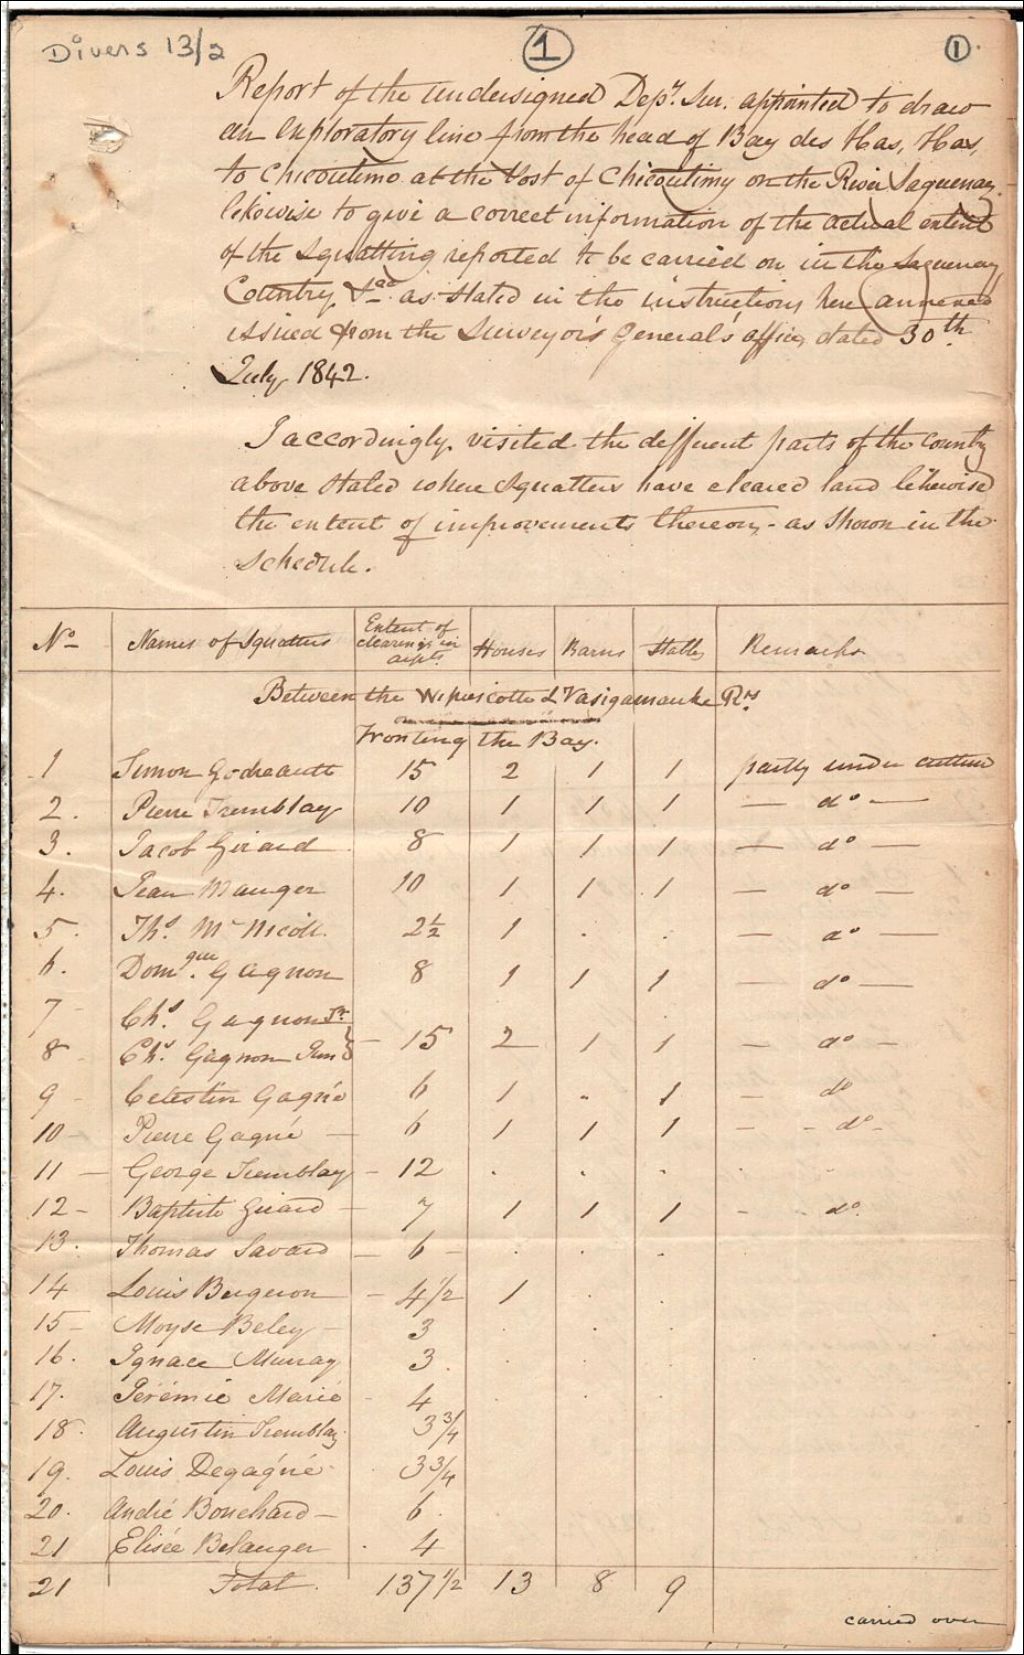 Divers 13/2
1
1
Report of the undersigned Depy. Sur. appointed to draw
an exploratory line from the head of Bay des Has, Has,
to Chicoutimo at the Post of Chicoutimy on the River Saguenay
likewise to give a correct information of the actual extent
of the squatting reported to be carried on in the Saguenay
Country as stated in the instructions here annexed
issued from the Surveyor's General's office, dated 30th
July 1842.
I accordingly visited the different parts of the County
above stated where squatters have cleared land likewise
the extent of improvements thereon, - as shown in the
schedule.
No Names of Squatters Extent of clearings in Houses Barns Stables Remarks
Between the & Vasigamanke Rrs
Fronting the Bay.
1 Simon Godreault 15 2 1 1 partly under culture
2. Pierre Tremblay 10 1 1 1 — do —
3. Jacob Girard 8 1 1 1 — do —
4. Jean Mauger 10 1 1 1 — do —
5. Ths. Mc Nicoll 2½ 1 . . — do —
6. Domque. Gagnon 8 1 1 1 — do —
7 - Chs. Gagnon Sr
8 - Chs. Gagnon Jun } - 15 2 1 1 — do -
9 - Celestin Gagné 6 1 . 1 - do
10 - Pierre Gagné — 6 1 1 1 - - do -
11 — George Tremblay - 12 . . . . .
12 - Baptiste Girard - 7 1 1 1 - do
13. Thomas Savard — 6 - . . .
14 Louis Bergeron - 4 1/2 1 . .
15 - Moyse Beley - 3 . . .
16. Ignace Murray 3. . . .
17. Jérémie Marié - 4 . . .
18. Augustin Tremblay 3 3/4
19. Louis Degagné . 3 3/4
20. André Bouchard — 6.
21 Elisée Belanger . 4
21 Total. 137 1/2 13 8 9
carried over